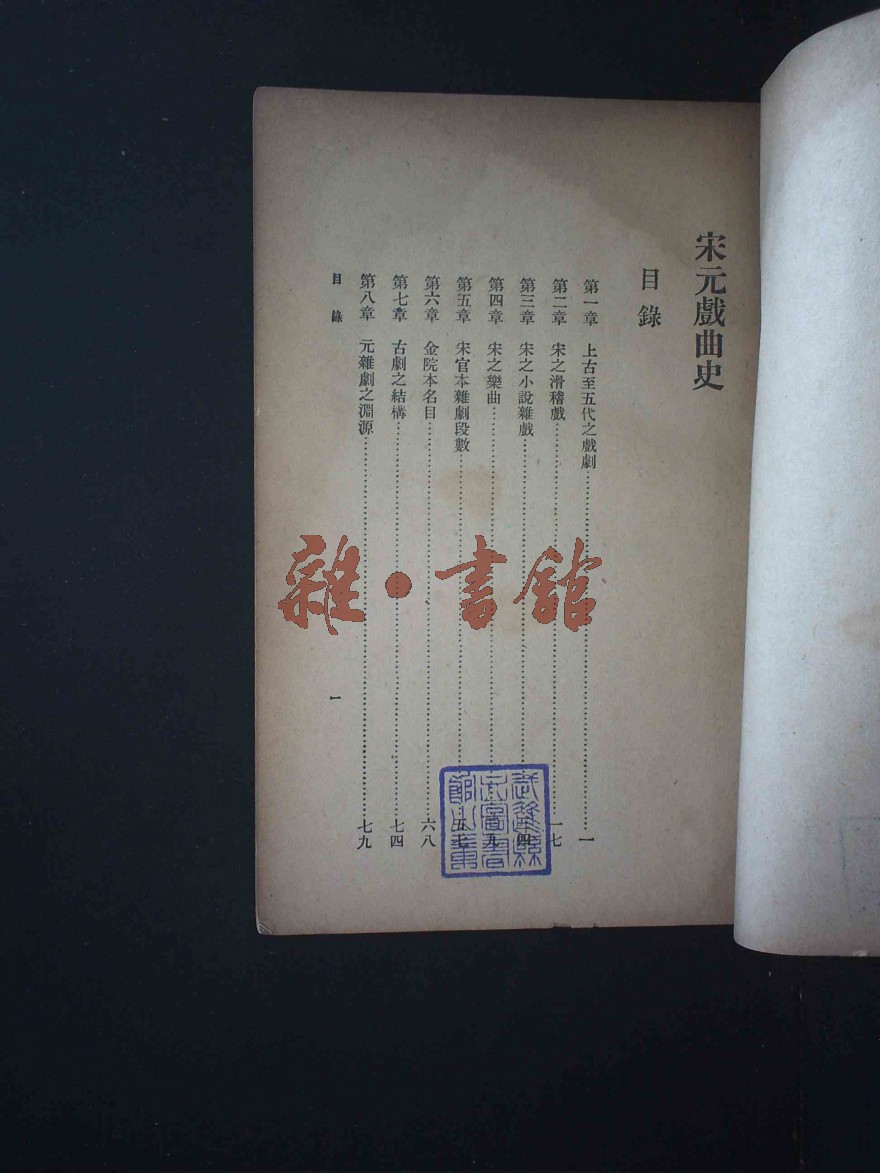 宋元戲曲史
目錄
第一章 上古至五代之戲劇……一
第二章 宋之滑稽戲……一七
第三章 宋之小說雜戲……
第四章 宋之樂曲……
第五章 宋官本雜劇段數……五七
第六章 金院本名目……六八
第七章 古劇之結構……七四
第八章 元雜劇之淵源……七九
目錄 一
雜·書館
武進縣
立圖書
館之章